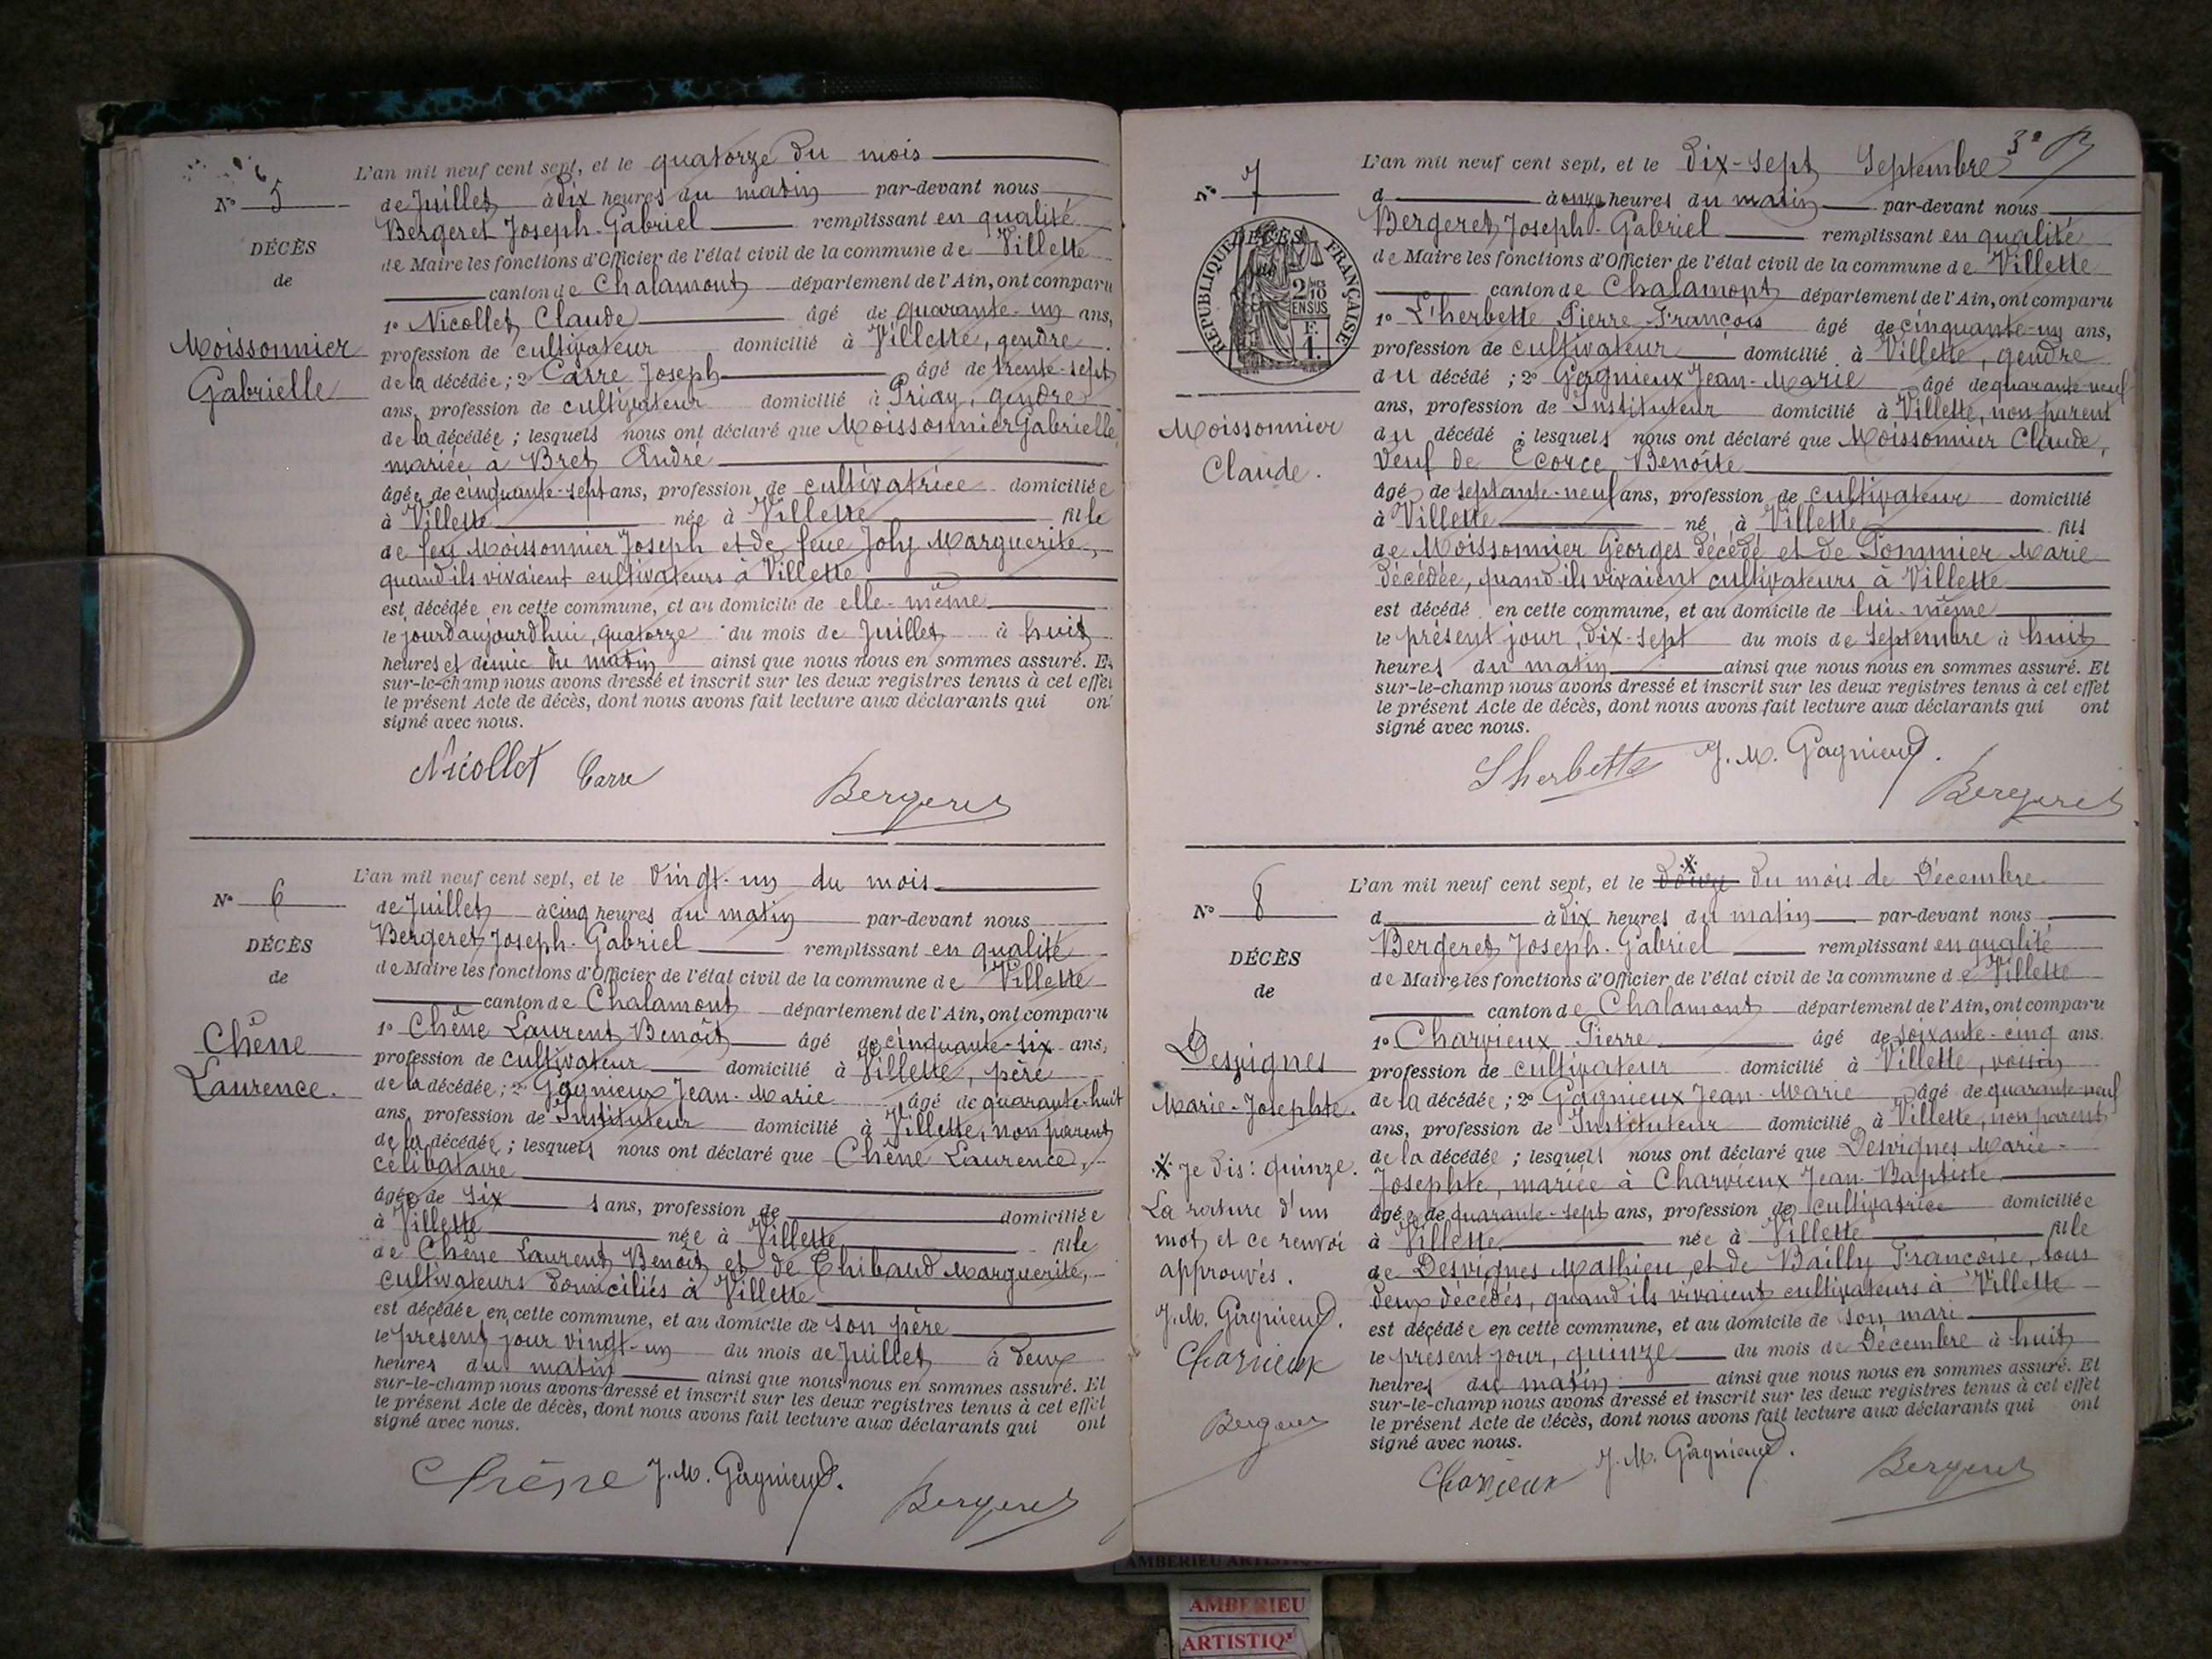 L'an mil neuf cent sept, et le quatorze du mois
N° 5
de Juillet à dix heures du matin par-devant nous
Bergeret Joseph-Gabriel remplissant en qualité
DÉCÈS
de Maire les fonctions d'Officier de l'état civil de la commune de Villette
de
canton de Chalamont département de l'Ain, ont comparu
1° Nicollet Claude âgé de quarante-un ans,
Moissonnier
profession de cultivateur domicilié à Villette, gendre
Gabrielle
de la décédée ; 2° Carre Joseph âgé de trente-sept
ans, profession de cultivateur domicilié à Priay, gendre
de la décédée ; lesquels nous ont déclaré que Moissonnier Gabrielle,
mariée à Bret André
âgée de cinquante-sept ans, profession de cultivatrice domiciliée
à Villette née à Villette fille
de feu Moissonnier Joseph et de feue Joly Marguerite,
quand ils vivaient cultivateurs à Villette
est décédée en cette commune, et au domicile de elle-même
le jourd'aujourd'hui, quatorze du mois de Juillet à huit
heures et demie du matin ainsi que nous nous en sommes assuré. Et
sur-le-champ nous avons dressé et inscrit sur les deux registres tenus à cet effet
le présent Acte de décès, dont nous avons fait lecture aux déclarants qui ont
signé avec nous.
Nicollet Carre
Bergeret
L'an mil neuf cent sept, et le vingt-un du mois
N° 6
de Juillet à cinq heures du matin par-devant nous
Bergeret Joseph-Gabriel remplissant en qualité
DÉCÈS
de Maire les fonctions d'Officier de l'état civil de la commune de Villette
de
canton de Chalamont département de l'Ain, ont comparu
1° Chêne Laurent Benoît âgé de cinquante-six ans,
Chêne
profession de cultivateur domicilié à Villette, père
Laurence.
de la décédée ; 2° Gagnieux Jean-Marie âgé de quarante-huit
ans, profession de Instituteur domicilié à Villette, non parent
de la décédée ; lesquels nous ont déclaré que Chêne Laurence,
célibataire
âgée de six ans, profession de domiciliée
à Villette née à Villette fille
de Chêne Laurent Benoît et de Thibaud Marguerite,
cultivateurs domiciliés à Villette
est décédée en cette commune, et au domicile de son père
le présent jour vingt-un du mois de Juillet à deux
heures du matin ainsi que nous nous en sommes assuré. Et
sur-le-champ nous avons dressé et inscrit sur les deux registres tenus à cet effet
le présent Acte de décès, dont nous avons fait lecture aux déclarants qui ont
signé avec nous.
Chêne J. M. Gagnieux.
Bergeret
3e
L'an mil neuf cent sept, et le dix-sept Septembre
N° 7
d à onze heures du matin par-devant nous
Bergeret Joseph-Gabriel remplissant en qualité
DÉCÈS
RÉPUBLIQUE FRANÇAISE
2/10 EN SUS
F. 1.
de Maire les fonctions d'Officier de l'état civil de la commune de Villette
canton de Chalamont département de l'Ain, ont comparu
1° L'herbette Pierre François âgé de cinquante-un ans,
profession de cultivateur domicilié à Villette, gendre
du décédé ; 2° Gagnieux Jean-Marie âgé de quarante-neuf
ans, profession de Instituteur domicilié à Villette, non parent
Moissonnier
du décédé ; lesquels nous ont déclaré que Moissonnier Claude,
Claude.
veuf de Ecorce Benoîte
âgé de septante-neuf ans, profession de cultivateur domicilié
à Villette né à Villette fils
de Moissonnier Georges décédé et de Pommier Marie
décédée, quand ils vivaient cultivateurs à Villette
est décédé en cette commune, et au domicile de lui-même
le présent jour, dix-sept du mois de Septembre à huit
heures du matin ainsi que nous nous en sommes assuré. Et
sur-le-champ nous avons dressé et inscrit sur les deux registres tenus à cet effet
le présent Acte de décès, dont nous avons fait lecture aux déclarants qui ont
signé avec nous.
Lherbette J. M. Gagnieux.
Bergeret
L'an mil neuf cent sept, et le douze du mois de Décembre
N° 8
d à dix heures du matin par-devant nous
Bergeret Joseph-Gabriel remplissant en qualité
DÉCÈS
de Maire les fonctions d'Officier de l'état civil de la commune de Villette
de
canton de Chalamont département de l'Ain, ont comparu
1° Charvieux Pierre âgé de soixante-cinq ans.
Desvignes
profession de cultivateur domicilié à Villette, voisin
Marie-Josephte.
de la décédée ; 2° Gagnieux Jean-Marie âgé de quarante-neuf
ans, profession de Instituteur domicilié à Villette, non parent
de la décédée ; lesquels nous ont déclaré que Desvignes Marie-
Josephte, mariée à Charvieux Jean-Baptiste
âgée de quarante-sept ans, profession de cultivatrice domiciliée
à Villette née à Villette fille
de Desvignes Mathieu et de Bailly Françoise, tous
deux décédés, quand ils vivaient cultivateurs à Villette
est décédée en cette commune, et au domicile de son mari
le présent jour, quinze du mois de Décembre à huit
heures du matin ainsi que nous nous en sommes assuré. Et
sur-le-champ nous avons dressé et inscrit sur les deux registres tenus à cet effet
le présent Acte de décès, dont nous avons fait lecture aux déclarants qui ont
signé avec nous.
Charvieux J. M. Gagnieux.
Bergeret
X je dis : quinze.
La rature d'un
mot et ce renvoi
approuvés.
J. M. Gagnieux.
Charvieux
Bergeret
AMBERIEU ARTISTIQUE
AMBERIEU
ARTISTIQ